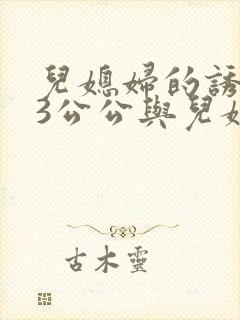 兒媳婦的誘
3公公與兒媳
古木靈